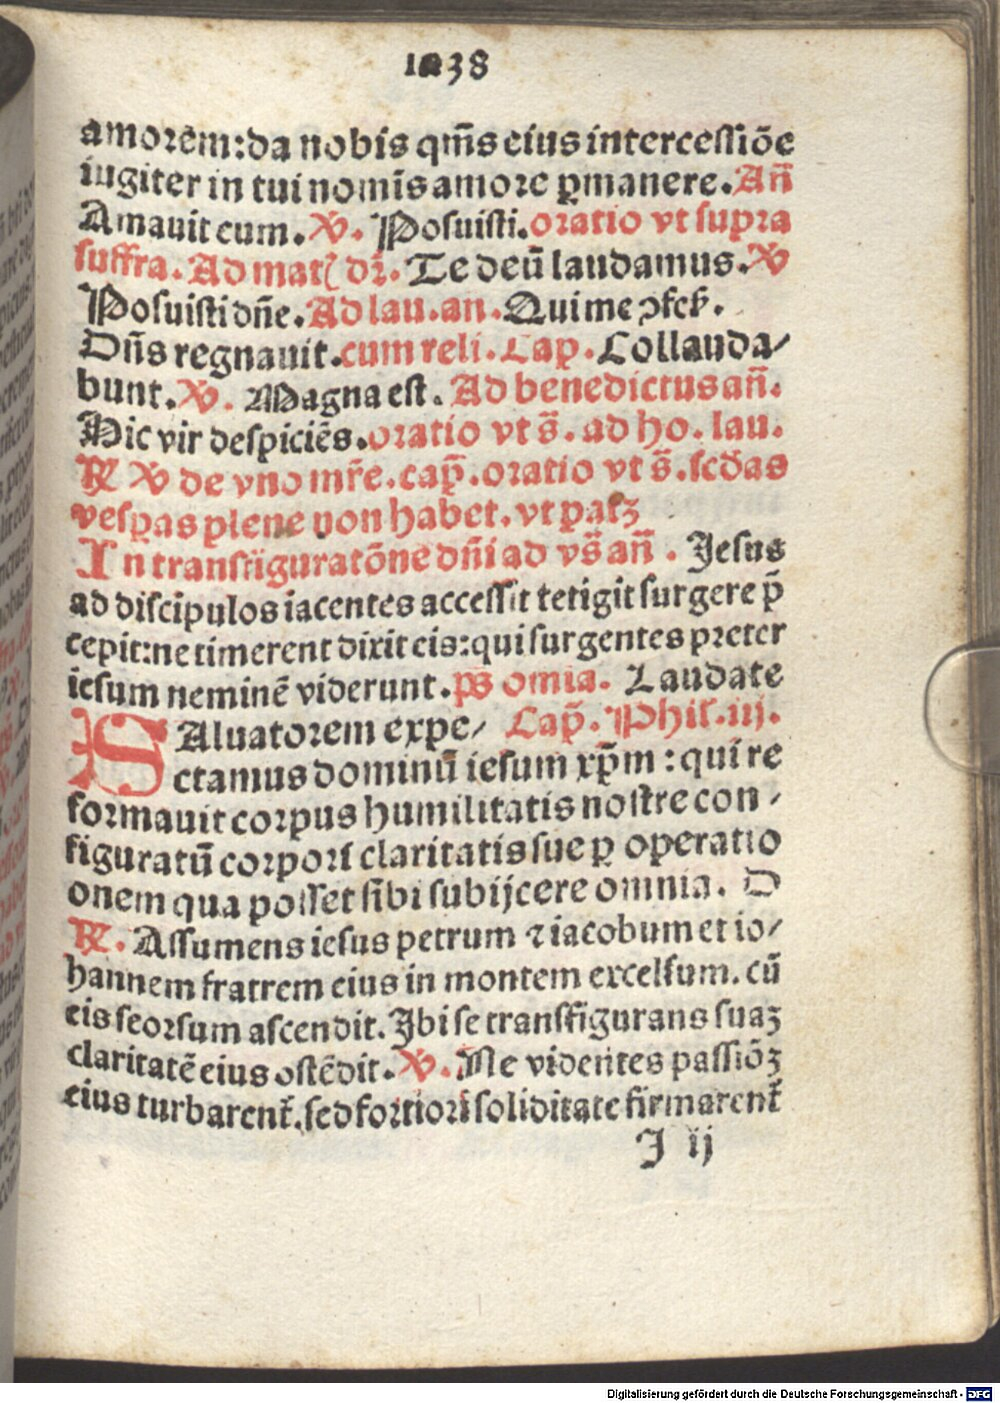 1038
amorem:da nobis qm̄s eius intercessiōe
iugiter in tui nomīs amore ꝑmanere. An̄
Amauit eum. ℣. Posuisti. oratio vt supra
suffra. Ad mat dr̄. Te deū laudamus. ℣
Posuisti dn̄e. Ad lau. an. Qui me ꝯfes.
Dn̄s regnauit. cum reli. Cap̄. Collauda/
bunt. ℣. Magna est. Ad benedictus an̄.
Hic vir despiciēs. oratio vt s̄. ad ho. lau.
℞ ℣ de vno mr̄e. cap̄. oratio vt s̄. scd̄as
vesꝑas plene non habet. vt ꝑatꝫ
In transfiguratōne dn̄i ad vs̄ an̄. Jesus
ad discipulos iacentes accessit tetigit surgere p̄
cepit:ne timerent dixit eis:qui surgentes preter
iesum neminē viderunt. ps omia. Laudate
SAluatorem expe/ Cap̄. Phil. iij.
ctamus dominū iesum xp̄m : qui re
formauit corpus humilitatis nostre con/
figuratū corpori claritatis sue ꝑ operatio
onem qua posset sibi subijcere omnia. D
℞. Assumens iesus petrum ⁊ iacobum et io/
hannem fratrem eius in montem excelsum. cū
eis seorsum ascendit. Ibi se transfigurans suaꝫ
claritatē eius ostēdit. ℣. Ne videntes passiōꝫ
eius turbarent̄. sed fortiori soliditate firmarent̄
J ij
Digitalisierung gefördert durch die Deutsche Forschungsgemeinschaft - DFG